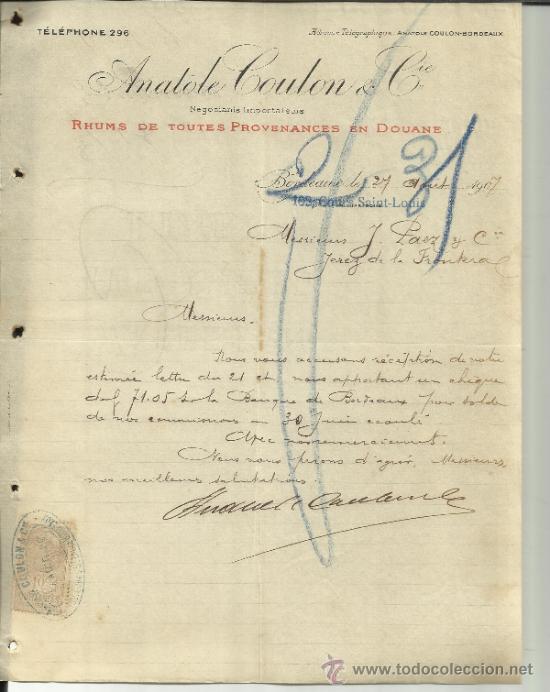 TÉLÉPHONE 296
Adresse Télégraphique, ANATOLE COULON-BORDEAUX
Anatole Coulon & Cie
Négociants Importateurs
RHUMS DE TOUTES PROVENANCES EN DOUANE
Bordeaux le 27 Août 1907
109, Cours Saint-Louis
31
Messieurs J. Paez y Cie
Jerez de la Frontera
Messieurs.
Nous vous accusons réception de votre
estimée lettre du 21 ct. nous apportant un chèque
de f 71.05 sur la Banque de Bordeaux pour solde
de nos commissions au 30 Juin écoulé
Avec nos remerciements.
Nous vous prions d'agréer, Messieurs
nos meilleures salutations
COULON & CIE
10
todocoleccion
© www.todocoleccion.net